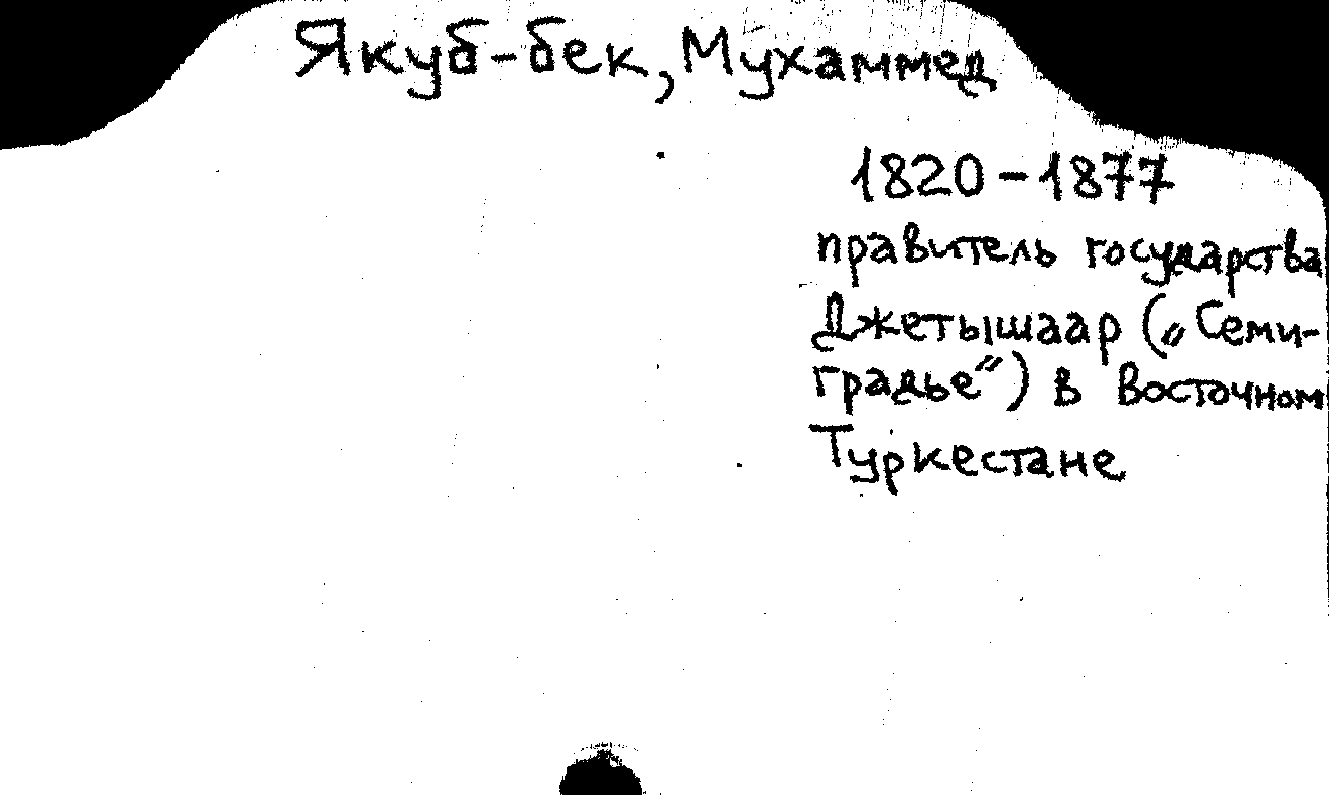 Якуб-бек, Мухаммед
1820-1877
правитель государства
Джетышаар („Семи-
градье“) в Восточном
Туркестане